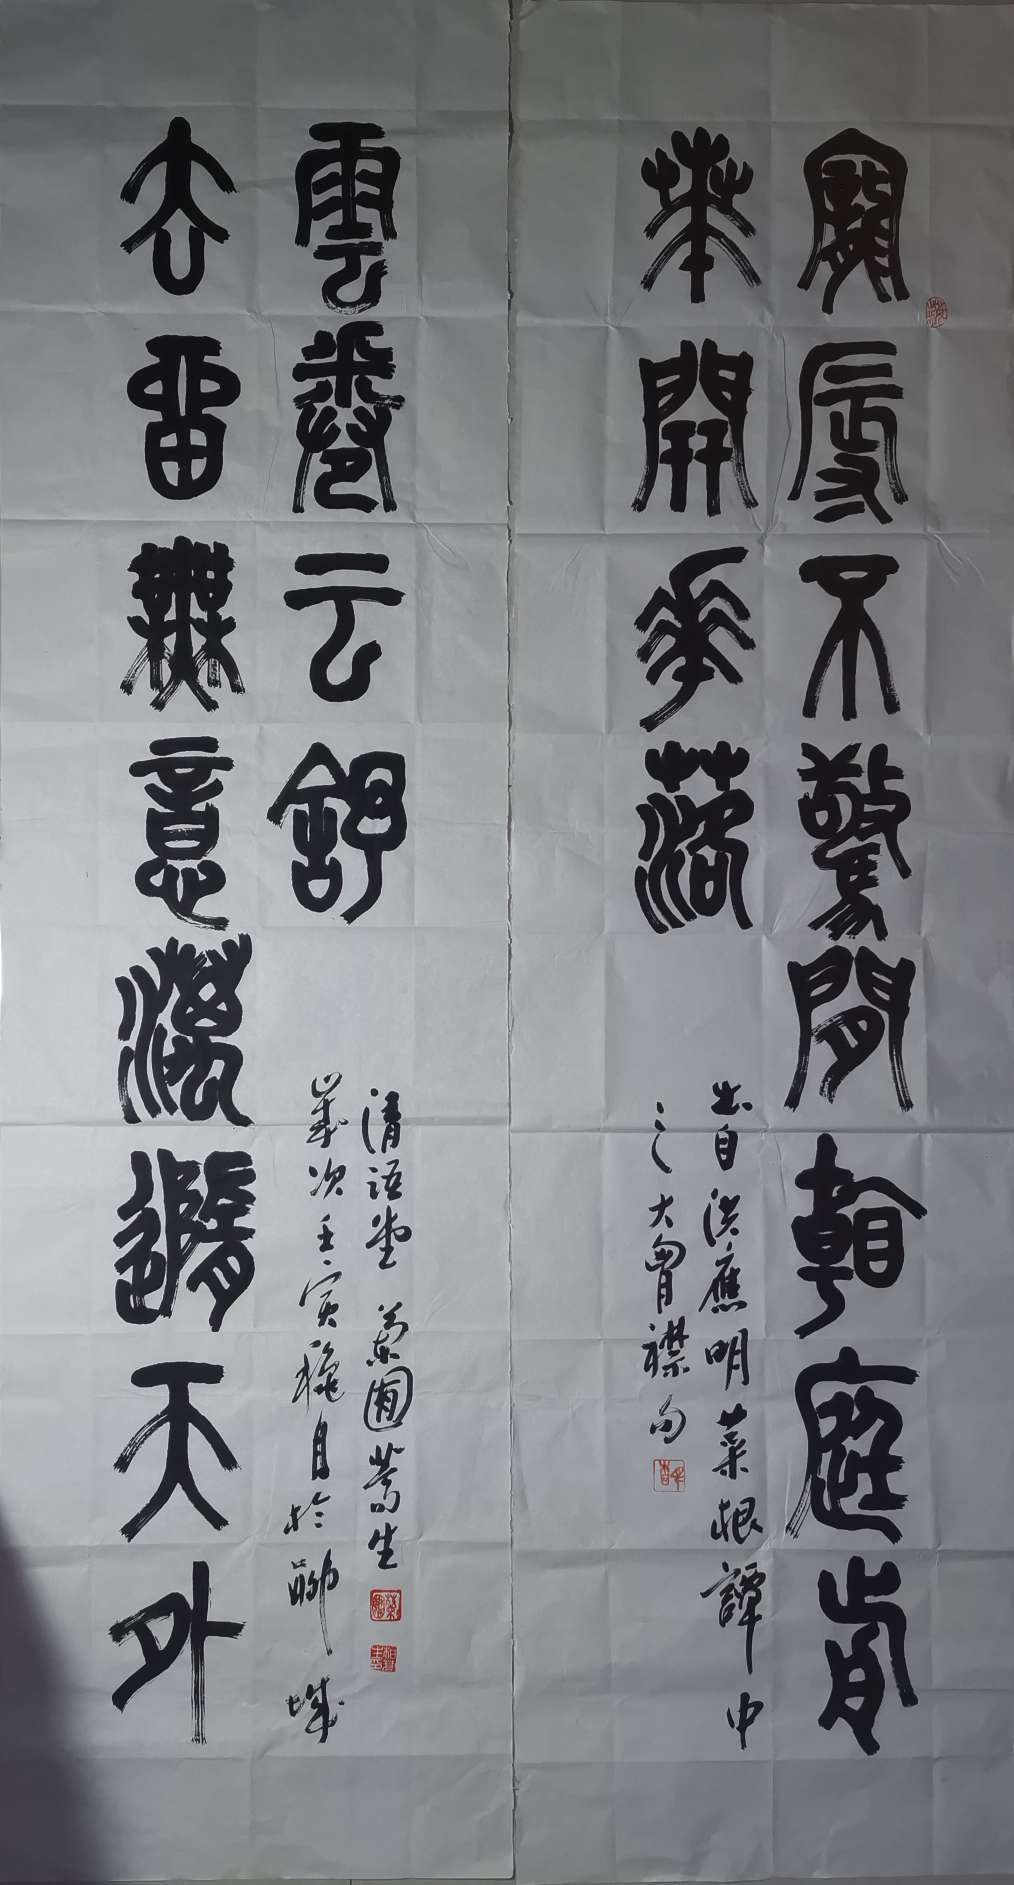 寵辱不驚閒看庭前
華開花落
出自洪應明菜根譚中
之大胷襟句
去留無意漫隨天外
雲卷云舒
歲次壬寅龝月於聊城
清語堂 菊圃